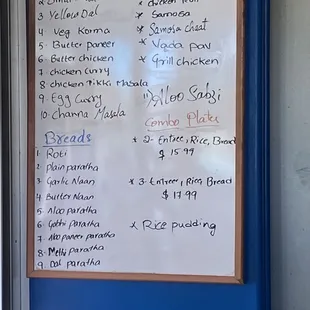 3 Yellow Dal
4 Veg Korma
5 Butter paneer
6 Butter chicken
7 chicken Curry
8 chicken Tikki Masala
9 Egg Curry
10. Channa Masala
Breads
1 Roti
2 Plain paratha
3 Garlic Naan
4 Butter Naan
5 Aloo paratha
6 Gobhi paratha
7 Aloo paneer paratha
8 Methi paratha
9 Dal paratha
* Samosa
* Samosa chaat
* Vada pav
* Grill chicken
Aloo Sabzi
Combo Plates
* 2- Entree, Rice, Bread
$ 15.99
* 3- Entrees, Rice, Bread
$ 17.99
* Rice pudding